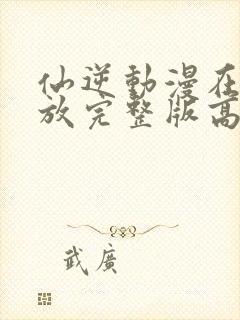 仙逆動漫在
放完整版高
武廣